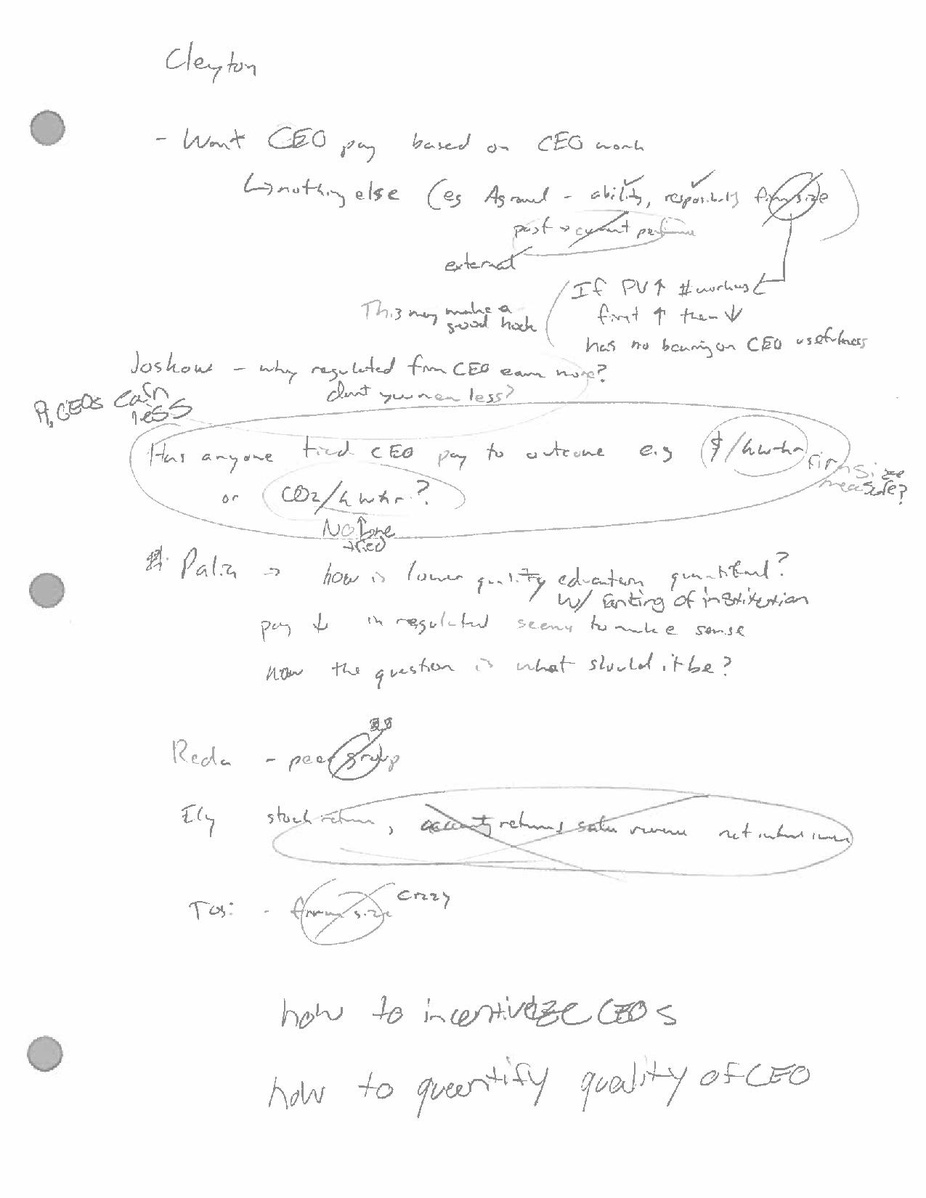 Cleyton
- Want CEO pay based on CEO work
↳ nothing else (eg Agrawal - ability, responsibility firm size)
past → current performance
external
If PV ↑ # workers
first ↑ then ↓
has no bearing on CEO usefulness
This may make a
good hook
Joskow - why regulated firm CEO earn more?
don't you mean less?
R, CEOs earn
less
Has anyone tied CEO pay to outcome e.g $/kwhr
or CO2/kwhr?
firm size
measure?
No one
tried
Palia → how is lower quality education quantified?
w/ ranking of institution
pay ↓ in regulated seems to make sense
now the question is what should it be?
Reda - peer group
Ely stock return, returns sales revenue net interest
Tosi - firm size crazy
how to incentivize CEOs
how to quantify quality of CEO